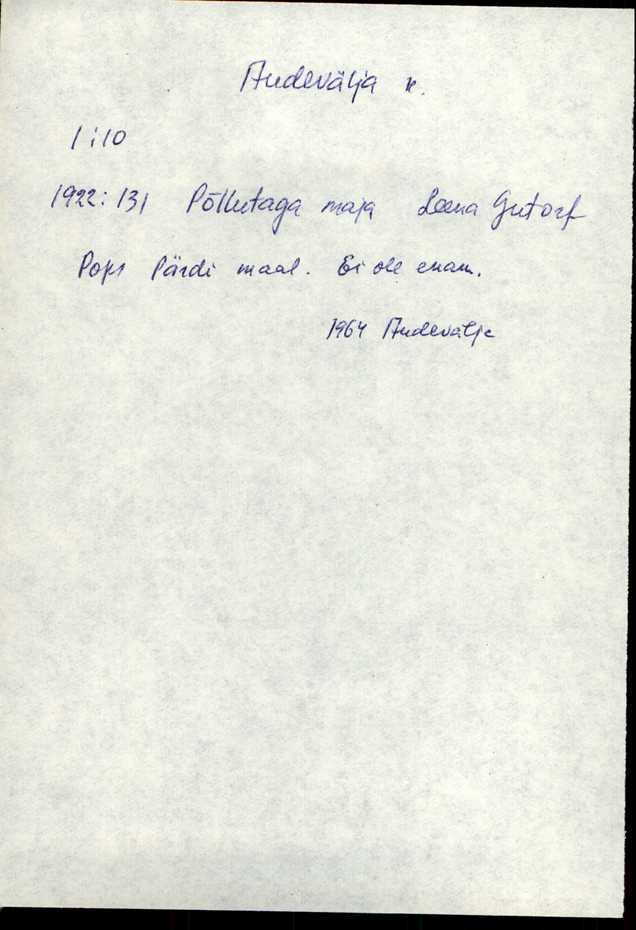 Audevälja k.
1:10
1922: 131 Põllutaga maja Leena Gutorf
Pops Pärdi maal. Ei ole enam.
1964 Audevälja